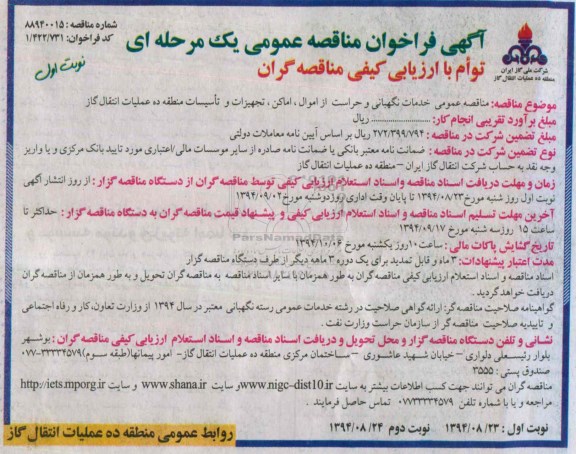 شماره مناقصه : ۸۸۹۴۰۰۱۵
کد فراخوان: ۱/۴۲۲/۷۳۱
آگهی فراخوان مناقصه عمومی یک مرحله ای
توأم با ارزیابی کیفی مناقصه گران
نوبت اول
شرکت ملی گاز ایران
منطقه ده عملیات انتقال گاز
موضوع مناقصه: مناقصه عمومی خدمات نگهبانی و حراست از اموال ، اماکن ، تجهیزات و تأسیسات منطقه ده عملیات انتقال گاز
مبلغ برآورد تقریبی انجام کار: .............................. ریال
مبلغ تضمین شرکت در مناقصه : ۲۷۲/۳۹۹/۷۹۴ ریال بر اساس آیین نامه معاملات دولتی
نوع تضمین شرکت در مناقصه : ضمانت نامه معتبر بانکی یا ضمانت نامه صادره از سایر موسسات مالی/اعتباری مورد تایید بانک مرکزی و یا واریز
وجه نقد به حساب شرکت انتقال گاز ایران – منطقه ده عملیات انتقال گاز
زمان و مهلت دریافت اسناد مناقصه واسناد استعلام ارزیابی کیفی توسط مناقصه گران از دستگاه مناقصه گزار : از روز انتشار آگهی
نوبت اول روز شنبه مورخ ۱۳۹۴/۰۸/۲۳ تا پایان وقت اداری روزدوشنبه مورخ ۱۳۹۴/۰۹/۰۲
آخرین مهلت تسلیم اسناد مناقصه و اسناد استعلام ارزیابی کیفی و پیشنهاد قیمت مناقصه گران به دستگاه مناقصه گزار : حداکثر تا
ساعت ۱۵ روزسه شنبه مورخ ۱۳۹۴/۰۹/۱۷
تاریخ گشایش پاکات مالی : ساعت ۱۰ روز یکشنبه مورخ ۱۳۹۴/۱۰/۰۶
مدت اعتبار پیشنهادات: ۳ ماه و قابل تمدید برای یک دوره ۳ ماهه دیگر از طرف دستگاه مناقصه گزار
اسناد مناقصه و اسناد استعلام ارزیابی کیفی مناقصه گران به طور همزمان با سایر اسناد مناقصه به مناقصه گران تحویل و به طور همزمان از مناقصه گران
دریافت خواهد گردید ..
گواهینامه صلاحیت مناقصه گر: ارائه گواهی صلاحیت در رشته خدمات عمومی رسته نگهبانی معتبر در سال ۱۳۹۴ از وزارت تعاون، کار و رفاه اجتماعی
و تاییدیه صلاحیت مناقصه گر از سازمان حراست وزارت نفت .
نشانی و تلفن دستگاه مناقصه گزار و محل تحویل و دریافت اسناد مناقصه و اسناد استعلام ارزیابی کیفی مناقصه گران : بوشهر
بلوار رئیسعلی دلواری –خیابان شهید عاشوری –ساختمان مرکزی منطقه ده عملیات انتقال گاز- امور پیمانها(طبقه سوم)۰۷۷-۳۳۳۳۴۵۷۹
صندوق پستی : ۳۵۵۵
مناقصه گران می توانند جهت کسب اطلاعات بیشتر به سایت www.nigc-dist10.ir وسایت www.shana.ir و سایت http://iets.mporg.ir
مراجعه و یا با شماره تلفن ۰۷۷۳۳۳۳۴۵۷۹ تماس حاصل فرمایند .
نوبت اول : ۱۳۹۴/۰۸/۲۳ نوبت دوم ۱۳۹۴/۰۸/۲۴
روابط عمومی منطقه ده عملیات انتقال گاز
ParsNamadData